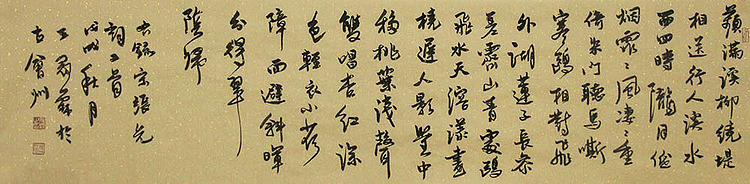 蘋滿溪柳繞堤
相送行人溪水
西回時隴月低
烟霏〻風凄〻重
倚朱門聽馬嘶
寒鷗相對飛
外湖蓮子長參
差霽山青處鷗
飛水天溶漾畫
橈遲人影鑒中
移桃葉淺聲
雙唱杏紅深
色輕衣小荷
障面避斜暉
分得翠
陰歸
右錄宋張先
詞二首
戊戌秋月
於
古會州